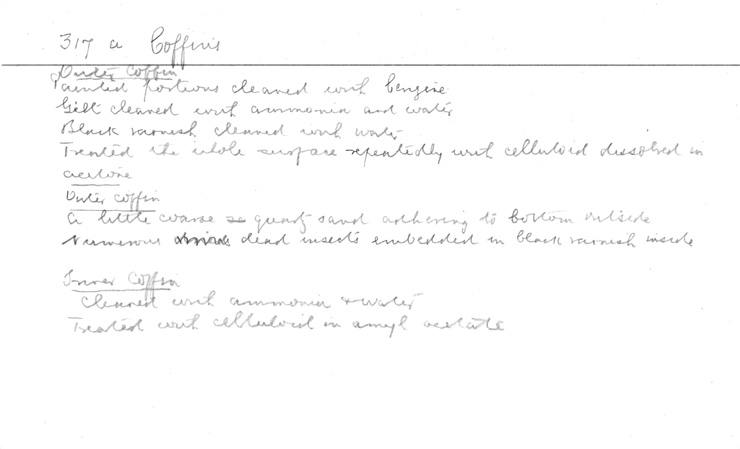 317 a Coffins
Outer Coffin
Painted portions cleaned with benzine
Gilt cleaned with ammonia and water
Black varnish cleaned with water
Treated the whole surface repeatedly with celluloid dissolved in
acetone
Outer coffin
A little coarse quartz sand adhering to bottom outside
Numerous dead insects embedded in black varnish inside
Inner Coffin
Cleaned with ammonia & water
Treated with celluloid in amyl acetate